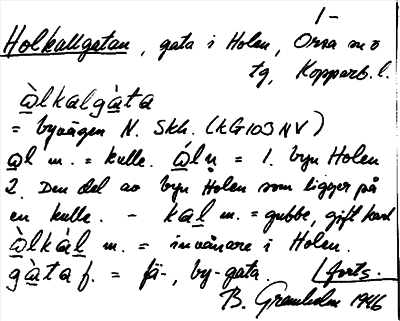 1-
Holkallgatan, gata i Holen, Orsa sn o
tg, Kopparb. l.
àlkalgàta
= byvägen N. Skh. (KG 103 NV)
al m. = kulle. áln = 1. byn Holen
2. Den del av byn Holen som ligger på
en kulle. - kal m. = gubbe, gift karl
àlkàl m. = invånare i Holen.
gàta f. = fä-, by-gata. forts.
B. Granholm 1946